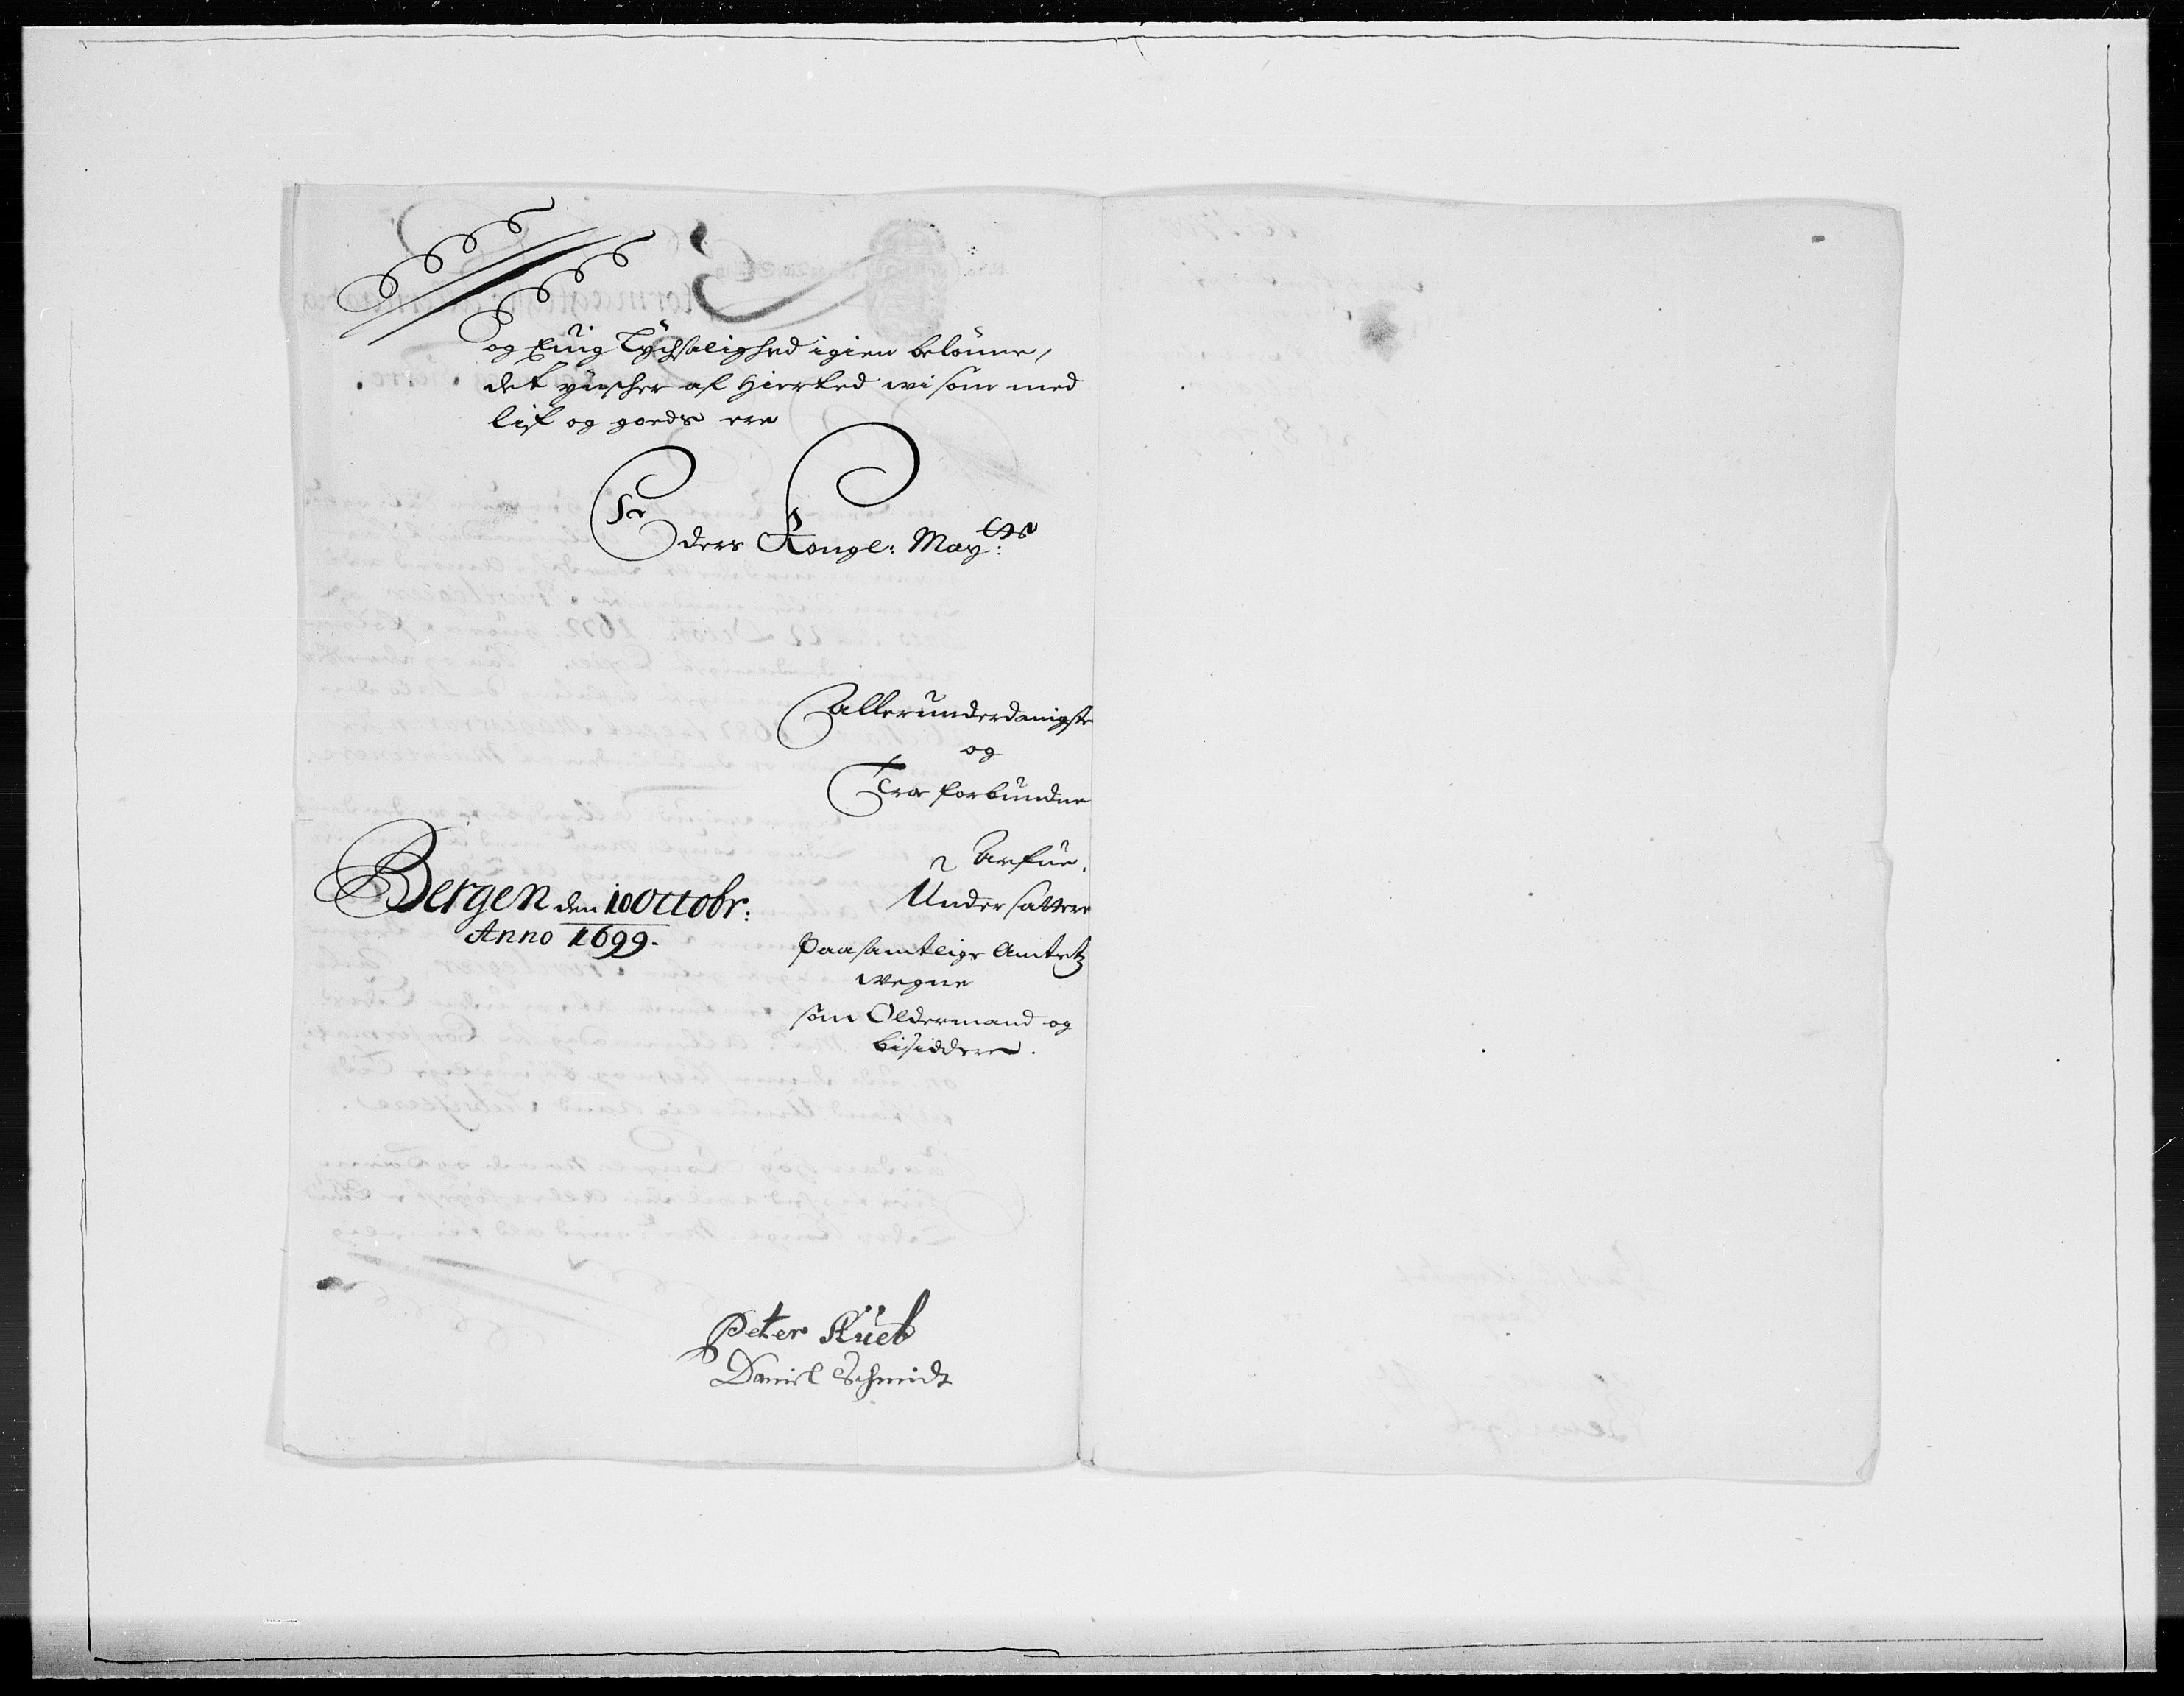 og Ewig Lychsalighed igien belönne,
det ynscher af Hierted wi som med
lif og goeds ere
Eders Kongl: May:tts
allerunderdanigste
og
Troe forbundne
Arfue.
Undersattere
Paa samtlige Amtetz
wegne
som Oldermand og
bisiddere.
Bergen den 10 Octobr:
Anno 1699.
Peter Kueb
Daniel Schmidt